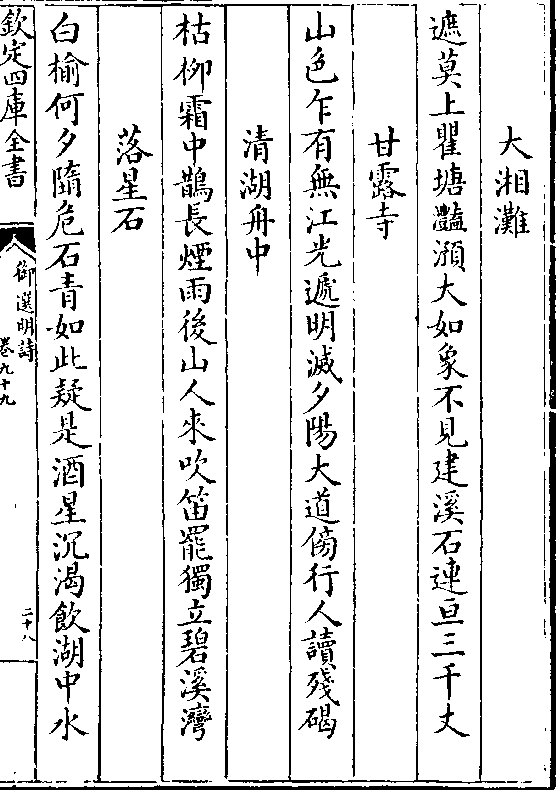 大湘灘
遮莫上瞿塘灩澦大如象不見建溪石連亘三千丈
甘露寺
山色乍有無江光遞明滅夕陽大道傍行人讀殘碣
清湖舟中
枯柳霜中鵲長煙雨後山人來吹笛罷獨立碧溪灣
落星石
白榆何夕隨危石青如此疑是酒星沉渴飲湖中水
欽定四庫全書
御選明詩
卷九十九
二十八